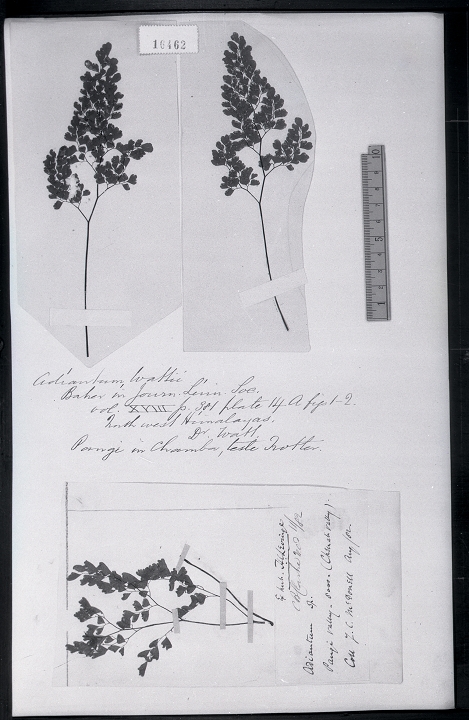 10462
10
5
1
Adiantum Wattii
Baker in Journ. Linn. Soc.
vol. XVIII p. 381 plate 14 A fig 1-2.
North west Himalayas.
Dr. Watt.
Pangi in Chamba, teste Trotter.
Adiantum sp.
Pangi valley - 8000 (Chenab valley).
Coll J. C. McDonell Aug/02